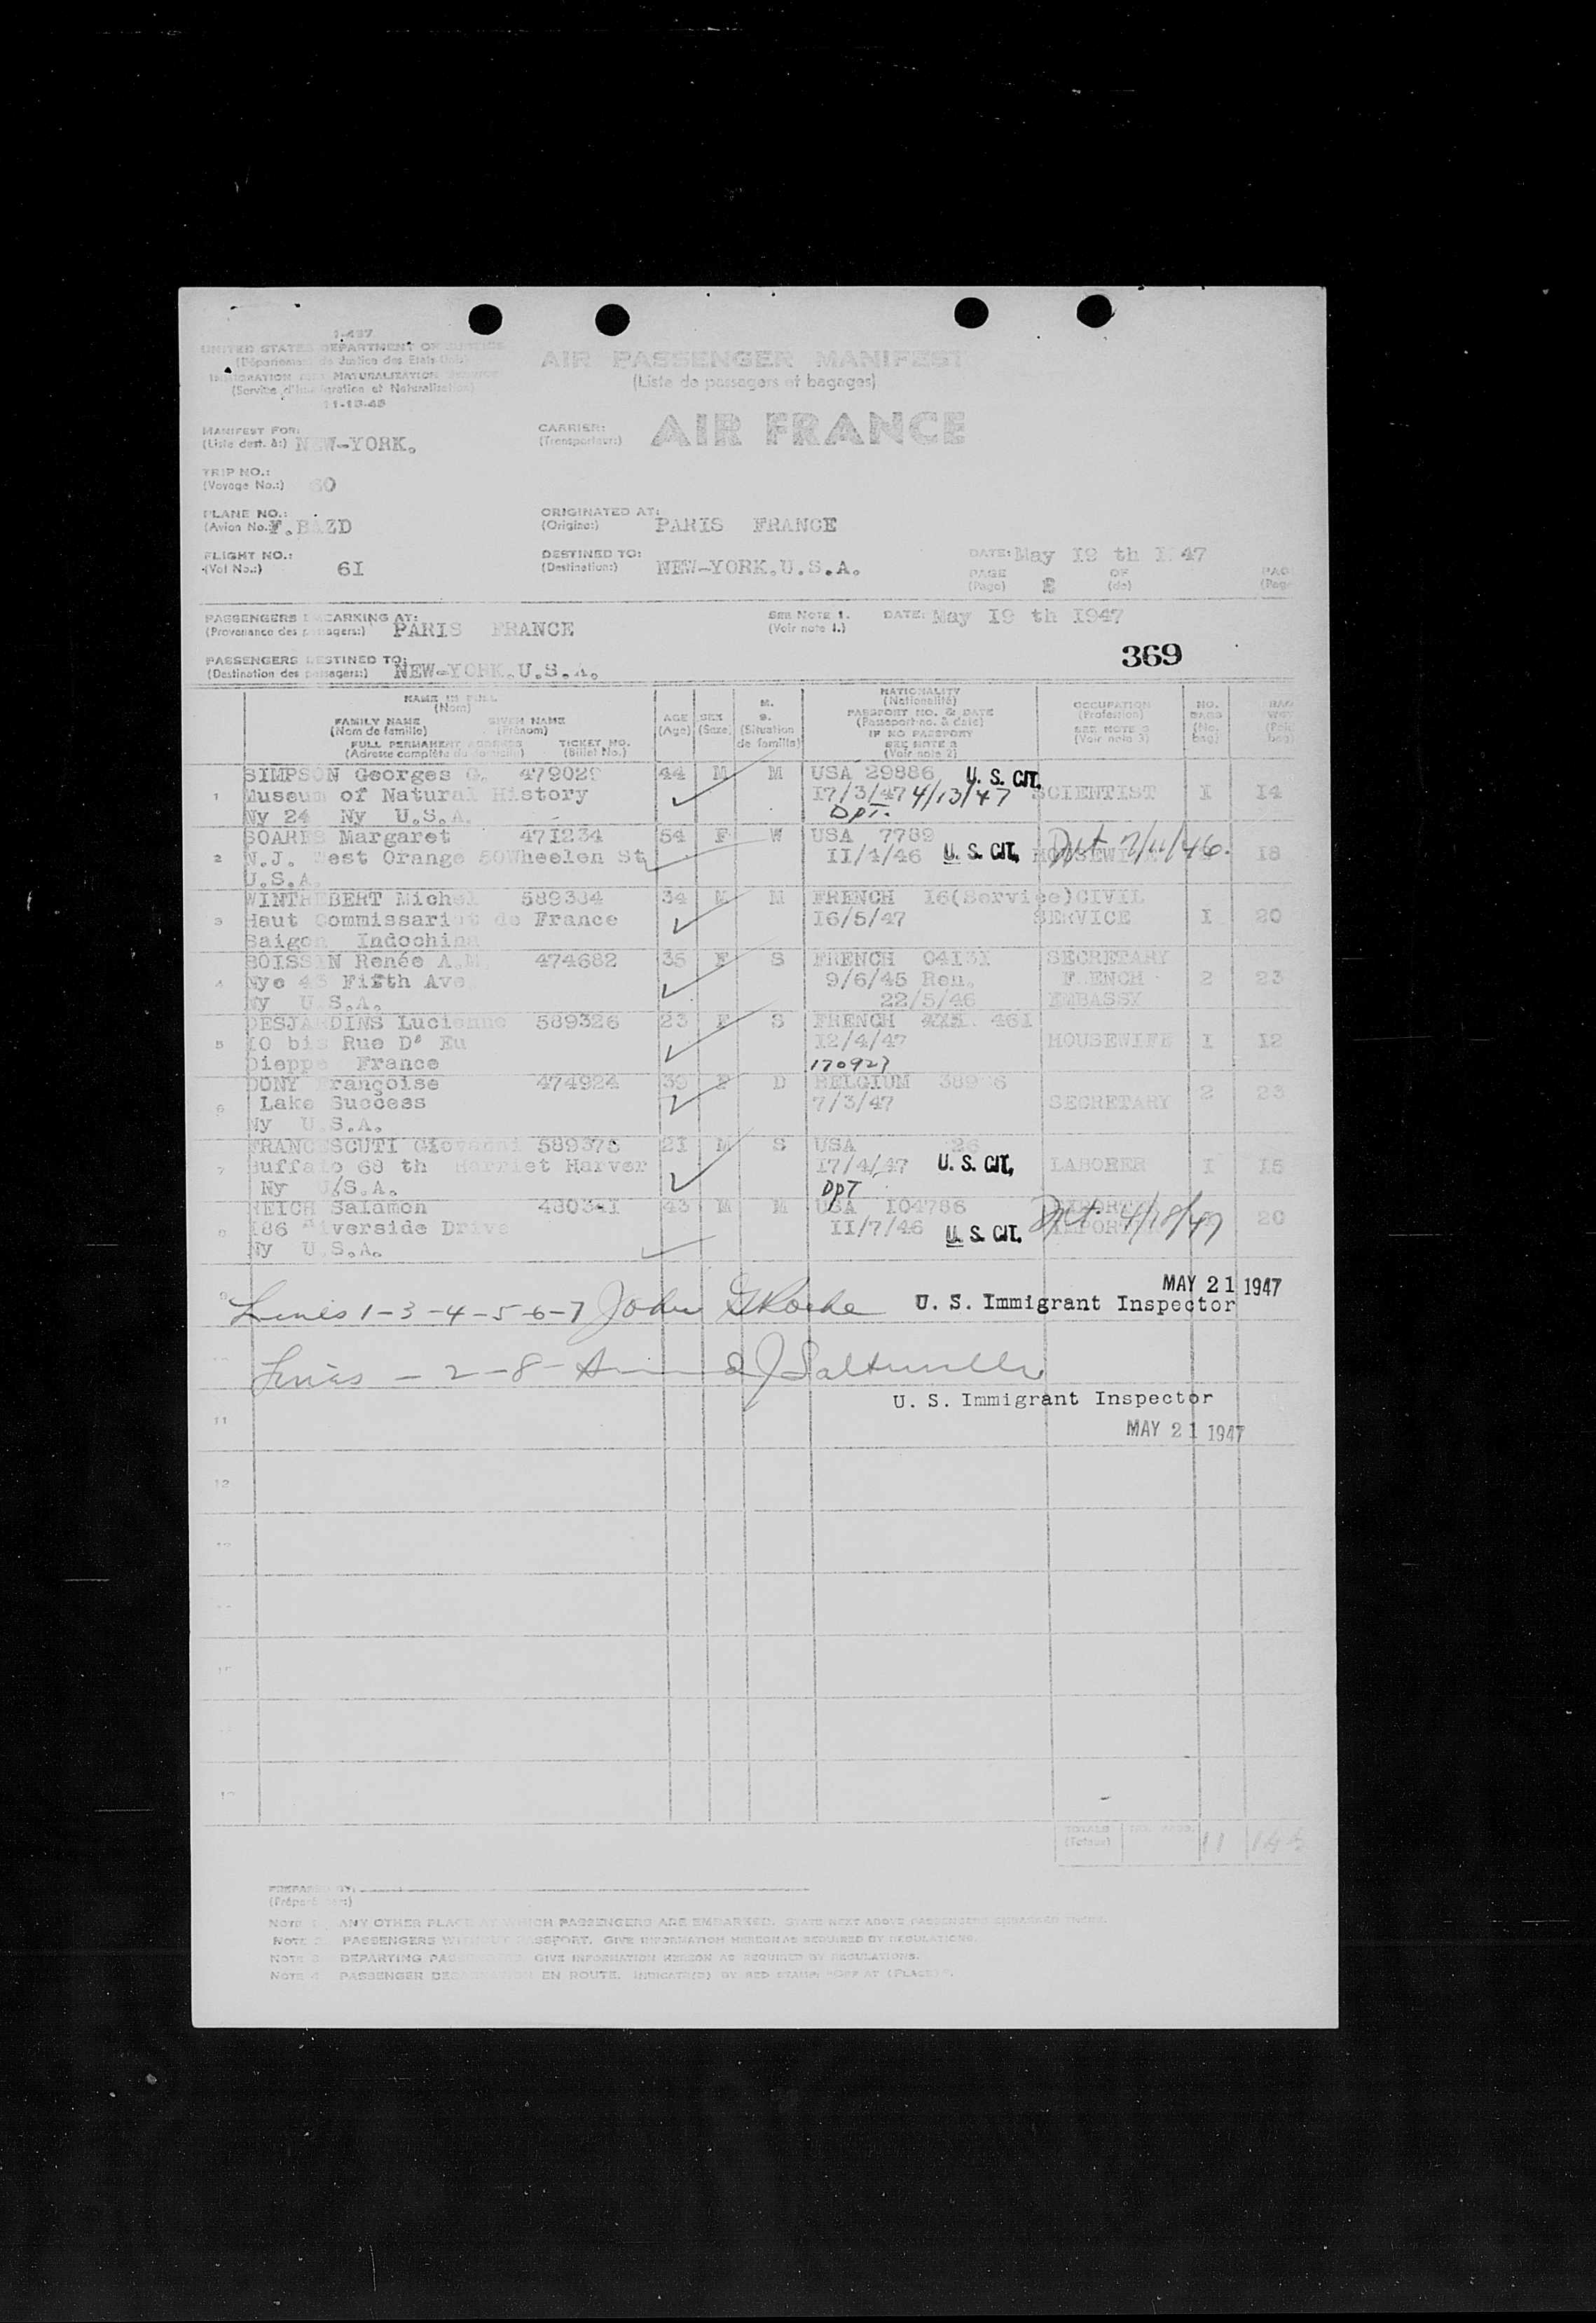 I-487
UNITED STATES DEPARTMENT OF JUSTICE
(Département de Justice des Etats-Unis)
IMMIGRATION AND NATURALIZATION SERVICE
(Service d'Immigration et Naturalisation)
11-13-45
AIR PASSENGER MANIFEST
(Liste de passagers et bagages)
MANIFEST FOR:
(Liste dest. à:) NEW-YORK.
CARRIER:
(Transporteur:) AIR FRANCE
TRIP NO.:
(Voyage No.:) 60
PLANE NO.:
(Avion No.:) F.BAZD
ORIGINATED AT:
(Origine:) PARIS FRANCE
FLIGHT NO.:
(Vol No.:) 6I
DESTINED TO:
(Destination:) NEW-YORK.U.S.A.
DATE: May I9 th I947
PAGE OF
(Page) (de)
PASSENGERS EMBARKING AT:
(Provenance des passagers:) PARIS FRANCE
SEE NOTE 1.
(Voir note 1.)
DATE: May I9 th I947
369
PASSENGERS DESTINED TO:
(Destination des passagers:) NEW-YORK.U.S.A.
NAME IN FULL
(Nom)
FAMILY NAME GIVEN NAME
(Nom de famille) (Prénom)
FULL PERMANENT ADDRESS TICKET NO.
(Adresse complète du domicile) (Billet No.)
AGE
(Age)
SEX
(Sexe)
M.
S.
(Situation
de famille)
NATIONALITY
(Nationalité)
PASSPORT NO. & DATE
(Passeport no. & date)
IF NO PASSPORT
SEE NOTE 2
(Voir note 2)
OCCUPATION
(Profession)
SEE NOTE 3
(Voir note 3)
NO.
BAGS
(No.
bag)
BAG
WGT
(Poids
bag)
1 SIMPSON Georges G. 479029 44 M M USA 29886 U. S. CIT.
Museum of Natural History I7/3/47 4/13/47 SCIENTIST I I4
Ny 24 Ny U.S.A. DPT.
2 SOARES Margaret 47I234 54 F W USA 7789
N.J. West Orange 50Wheelen St II/4/46 U. S. CIT. HOUSEWIFE I8
U.S.A.
3 WINTREBERT Michel 589384 34 M M FRENCH I6(Service)CIVIL
Haut Commissariat de France I6/5/47 SERVICE I 20
Saigon Indochina
4 BOISSIN Renée A.M. 474682 35 F S FRENCH 04I3I SECRETARY
Nyc 43 Fifth Ave 9/6/45 Ren. FRENCH 2 23
Ny U.S.A. 22/5/46 EMBASSY
5 DESJARDINS Lucienne 589326 23 F S FRENCH 46I
I0 bis Rue D' Eu I2/4/47 HOUSEWIFE I I2
Dieppe France 170927
6 DONY Françoise 474924 39 F D BELGIUM
Lake Success 7/3/47 SECRETARY 2 23
Ny U.S.A.
7 FRANCESCUTI Giovanni 589376 2I M S USA 26
Buffalo 68 th Harriet Harver I7/4/47 U. S. CIT. LABORER I I5
Ny U.S.A. DPT
8 REICH Salamon 48034I 43 M M USA I04786
I86 Riverside Drive II/7/46 U. S. CIT. 4/18/47 20
Ny U.S.A.
MAY 21 1947
Lines 1-3-4-5-6-7 John G Roche U. S. Immigrant Inspector
Lines - 2-8-
U. S. Immigrant Inspector
11
MAY 21 1947
12
TOTALS NO. PASS.
(Totaux) 11
PREPARED BY:
(Préparé par:)
NOTE 1 ANY OTHER PLACE AT WHICH PASSENGERS ARE EMBARKED. STATE NEXT ABOVE PASSENGERS EMBARKED THERE.
NOTE 2 PASSENGERS WITHOUT PASSPORT. GIVE INFORMATION HEREON AS REQUIRED BY REGULATIONS.
NOTE 3 DEPARTING PASSENGERS. GIVE INFORMATION HEREON AS REQUIRED BY REGULATIONS.
NOTE 4 PASSENGER EN ROUTE. BY RED STAMP "OFF AT (PLACE)".